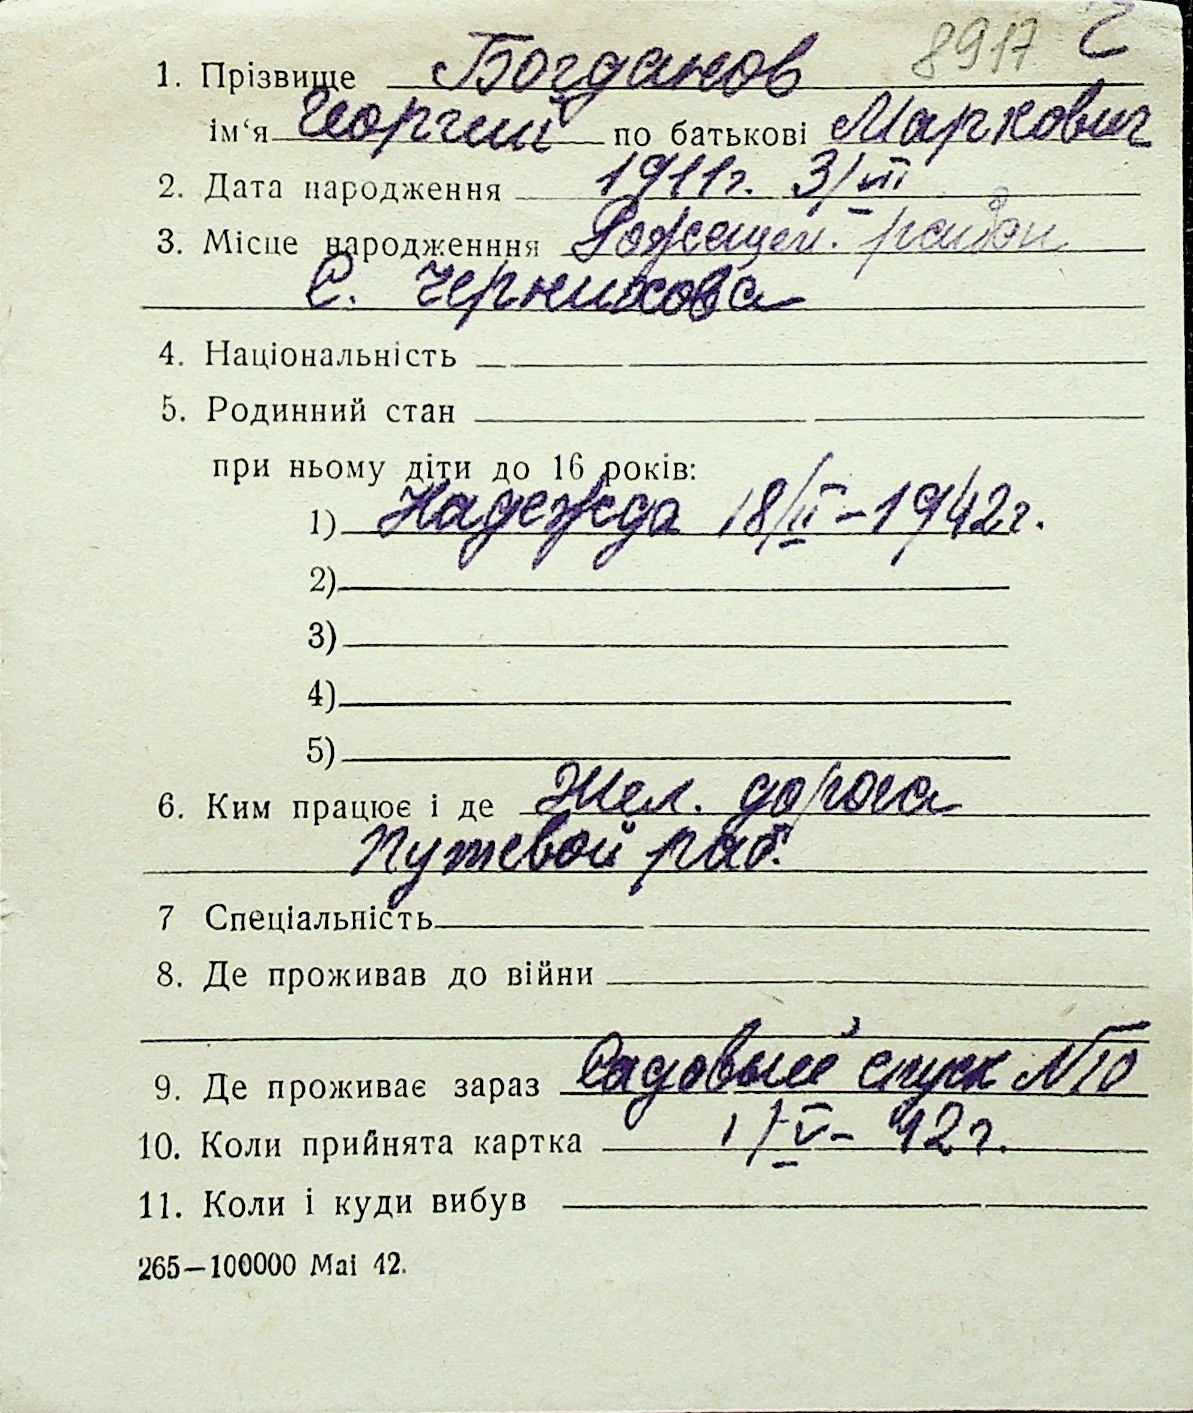 8917
1. Прізвище Богданов
ім‘я Георгий по батькові Маркович
2. Дата народження 1911г. 3/VII
3. Місце народженння район
с. Чернихова
4. Національність
5. Родинний стан
при ньому діти до 16 років:
1) Надежда 18/II – 1942г.
2)
3)
4)
5)
6. Ким працює і де Жел. дорога
Путевой раб.
7 Спеціальність
8. Де проживав до війни
9. Де проживає зараз Садовый спуск №10
10. Коли прийнята картка 1/V – 42г.
11. Коли і куди вибув
265—100000 Mai 42.